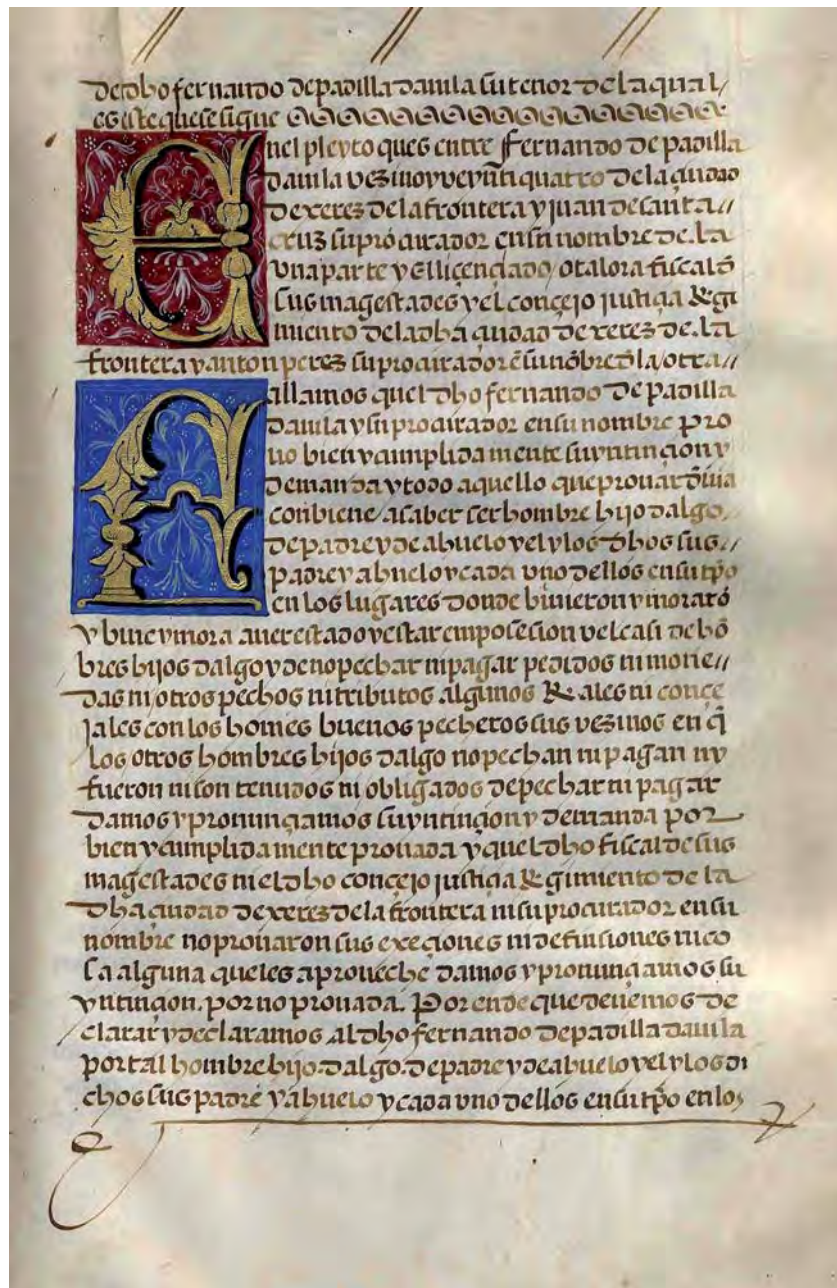 dedho fernando depadilla davila su tenor dela qual
es este que se sigue
Enel pleyto ques entre fernando de padilla
davila vezino y veynti quatro dela çiudad
de xerez dela frontera y juan de santa
cruz su procurador en su nombre de la
una parte y el liçençiado otalora fiscal đ
sus magestades y el conçejo justiçia Regi
miento dela dha çiudad de xerez de la
frontera y anton perez su procurador ē su nōbre đ la otra
Fallamos quel dho fernando de padilla
davila y su procurador en su nombre pro
uo bien y cumplida mente su yntinçion y
demanda y todo aquello que prouar đuia
conbiene a saber ser hombre hijo dalgo
de padre y de abuelo y el y los đhos sus
padre y abuelo y cada uno dellos en su tpō
en los lugares donde biuieron y morarō
y biue y mora auer estado y estar em posesion vel casi de hō
bres hijos dalgo y de no pechar ni pagar pedidos ni mone
das ni otros pechos ni tributos algunos Reales ni conçe
jales con los homes buenos pecheros sus vezinos en q̄
los otros hombres hijos dalgo no pechan ni pagan ny
fueron ni son tenudos ni obligados de pechar ni pagar
damos y pronunçiamos su yntinçion y demanda por
bien y cumplida mente prouada y quel dho fiscal de sus
magestades ni el dho conçejo justiçia Regimiento de la
dha çiudad de xerez dela frontera ni su procurador en su
nombre no prouaron sus exeçiones ni definsiones ni co
sa alguna que les aproueche damos y pronunçiamos su
yntinçion. por no prouada. Por ende que deuemos de
clarar y declaramos al dho fernando de padilla davila
por tal hombre hijo.dalgo.de padre y de abuelo y el y los di
chos sus padre y abuelo y cada uno dellos en su tpō en los